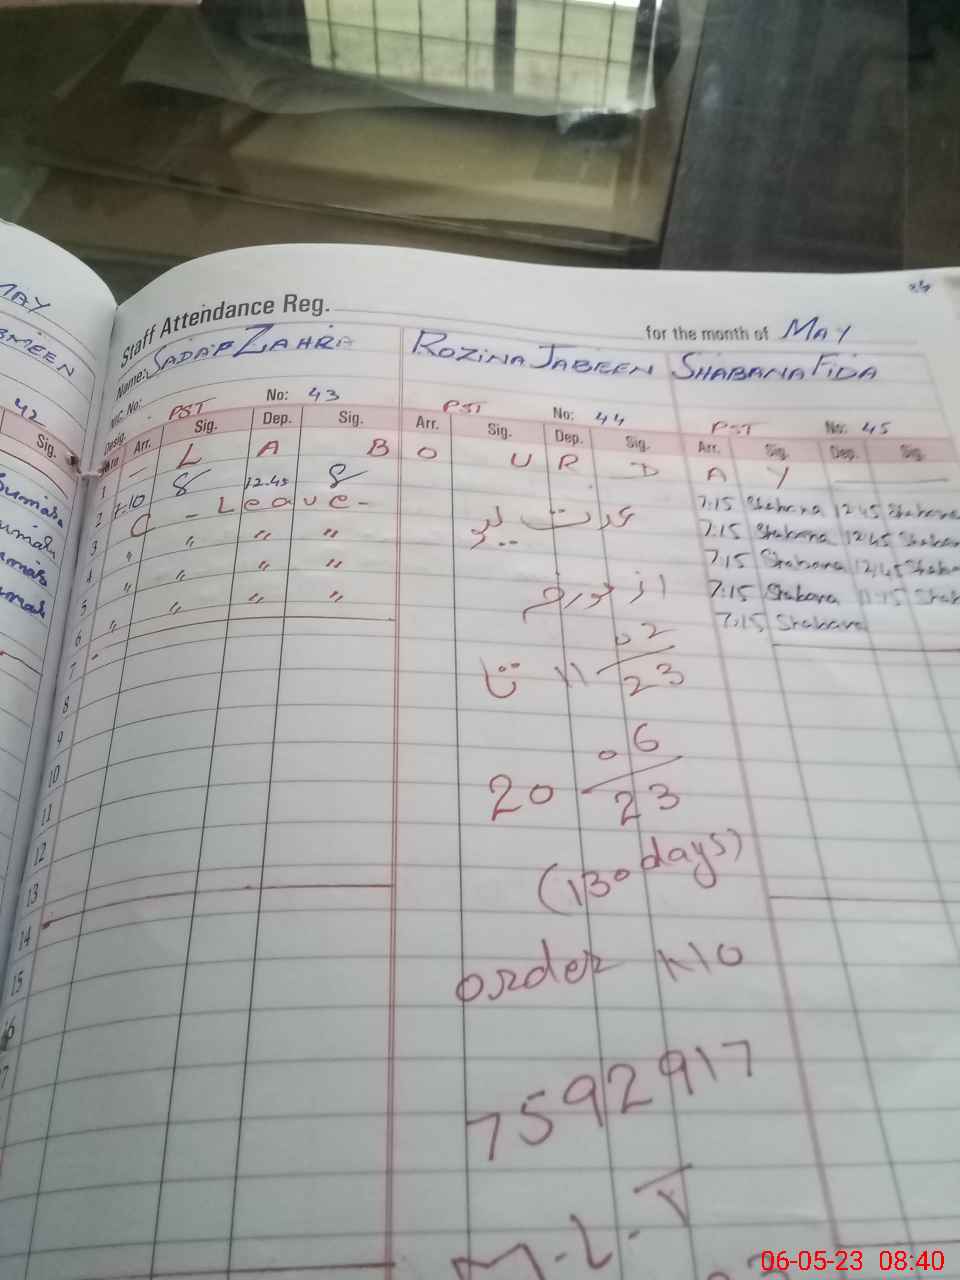 MAY
Staff Attendance Reg.
for the month of MAY
Name: SADAF ZAHRA
ROZINA JABEEN
SHABANA FIDA
PST No: 43
PST No: 44
PST No: 45
42
Sig.
Arr. Sig. Dep. Sig. Arr. Sig. Dep. Sig. Arr. Sig. Dep. Sig.
1 L A B O U R D A Y
2 7:10 12.45 7:15 Shabana 12 45 Shabana
3 C - Leave - عدت لیو 7:15 Shabana 12,45 Shaban
4 " " " " 7:15 Shabana 12,45 Shaba
5 " " " " از مورخہ 7:15 Shabana Shab
6 " " " " 02 7:15 Shabana
7 11 23 تا
8
9 06
10 20 23
11
12 (130 days)
13
14 order No
15
16
7592917
M.L.T
06-05-23 08:40